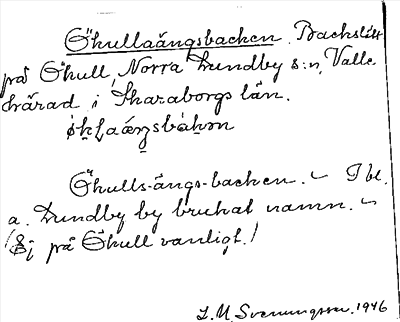 Ökullaängsbacken. Backslätt
på Ökull, Norra Lundby s:n, Valle
härad i Skaraborgs län.
Ökulls-ängs-backen. I bl.
a. Lundby by brukat namn.
(Ej på Ökull vanligt.)
S. M. Svenungsson. 1946